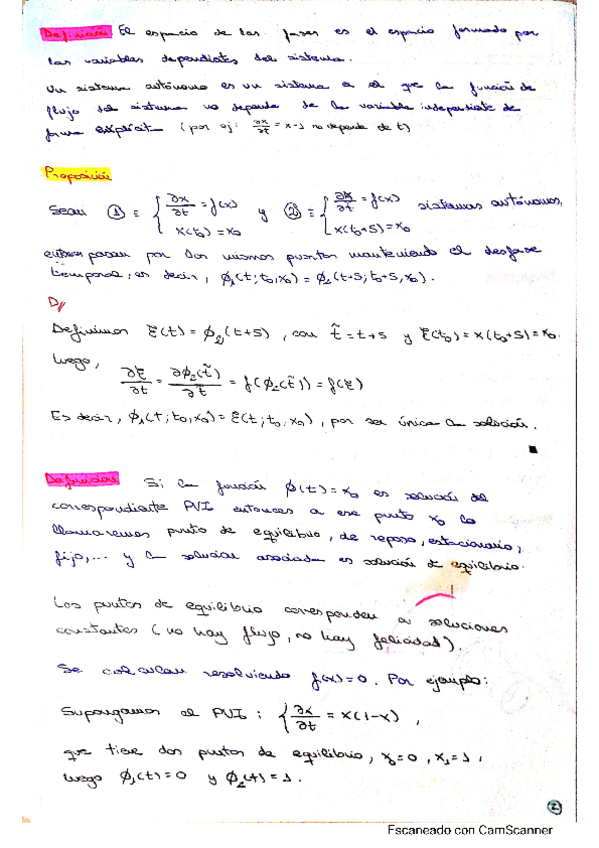 Definición El espacio de las fases es el espacio formado por
las variables dependientes del sistema.
Un sistema autónomo es un sistema en el que la función de
flujo del sistema no depende de la variable independiente de
forma explícita (por ej: ∂x/∂t = x-1 no depende de t)
Proposición
Sean ① ≡ { ∂x/∂t = f(x) y ② ≡ { ∂x/∂t = f(x) sistemas autónomos,
x(t₀) = x₀ x(t₀+s) = x₀
entonces pasan por los mismos puntos manteniendo el desfase
temporal, es decir, ϕ₁(t; t₀, x₀) = ϕ₂(t+s; t₀+s, x₀).
D/
Definimos ξ(t) = ϕ₂(t+s), con t̃ = t+s y ξ(t₀) = x(t₀+s) = x₀.
Luego,
∂ξ/∂t = ∂ϕ₂(t̃)/∂t̃ = f(ϕ₂(t̃)) = f(ξ)
Es decir, ϕ₁(t; t₀, x₀) = ξ(t; t₀, x₀), por ser única la solución.
■
Definición Si la función ϕ(t) = x₀ es solución del
correspondiente PVI entonces a ese punto x₀ lo
llamaremos punto de equilibrio, de reposo, estacionario,
fijo,... y la solución asociada es solución de equilibrio.
Los puntos de equilibrio corresponden a soluciones
constantes (no hay flujo, no hay felicidad).
Se calculan resolviendo f(x) = 0. Por ejemplo:
Supongamos el PVI: { ∂x/∂t = x(1-x) ,
que tiene dos puntos de equilibrio, x₀ = 0, x₁ = 1,
luego ϕ₁(t) = 0 y ϕ₂(t) = 1.
②
Escaneado con CamScanner